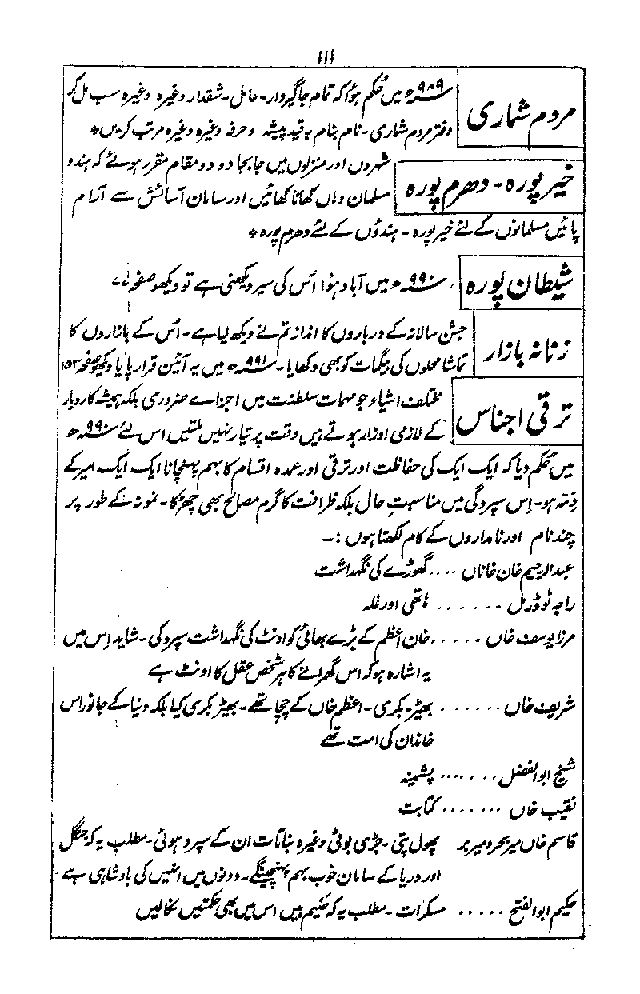 ۱۱۱
مردم شماری
۹۸۹ھ میں حکم ہوا کہ تمام جاگیردار۔ عامل۔ شقدار وغیرہ وغیرہ سب مل کر
دفتر مردم شماری۔ نام بنام بہ قید پیشہ و حرفہ وغیرہ وغیرہ مرتب کریں *
خیر پورہ۔ دھرم پورہ
شہروں اور منزلوں میں جابجا دو دو مقام مقرر ہوئے کہ ہندو
مسلمان وہاں کھانا کھائیں اور سامان آسائش سے آرام
پائیں مسلمانوں کے لئے خیر پورہ۔ ہندوؤں کے لئے دھرم پورہ *
شیطان پورہ
۹۹۰ھ میں آباد ہوا اُس کی سیر دیکھنی ہے تو دیکھو صفحہ
زنانہ بازار
جشن سالانہ کے درباروں کا انداز تم نے دیکھ لیا ہے۔ اُس کے بازاروں کا
تماشا محلوں کی بیگمات کو بھی دکھایا۔ ۹۹۱ھ میں یہ آئین قرار پایا دیکھو صفحہ
ترقی اجناس
مختلف اشیاء جو مہمات سلطنت میں اجزائے ضروری بلکہ ہمیشہ کاروبار
کے لازمی اوزار ہوتے ہیں وقت پر تیار نہیں ملتیں اس لئے ۹۹۰ھ
میں حکم دیا کہ ایک ایک کی حفاظت اور ترقی اور عمدہ اقسام کا بہم پہنچانا ایک ایک امیر کے
ذمہ ہو۔ اِس سپردگی میں مناسبتِ حال بلکہ ظرافت کا گرم مصالح بھی چھڑکا۔ نمونہ کے طور پر
چند نام اور نامداروں کے کام لکھتا ہوں :۔
عبدالرحیم خان خاناں .... گھوڑے کی نگہداشت
راجہ ٹوڈرمل ....... ہاتھی اور غلہ
مرزا یوسف خاں ..... خان اعظم کے بڑے بھائی کو اونٹ کی نگہداشت سپرد کی۔ شاید اِس میں
یہ اشارہ ہو کہ اس گھرانے کا ہر شخص عقل کا اونٹ ہے
شریف خاں ....... بھیڑ۔ بکری۔ اعظم خاں کے چچا تھے۔ بھیڑ بکری کیا بلکہ دنیا کے جانور اس
خاندان کی امت تھے
شیخ ابوالفضل ....... پشمینہ
نقیب خاں ....... کتابت
قاسم خاں میر بحر و میر بر پھول پتی۔ جڑی بوٹی وغیرہ نباتات ان کے سپرد ہوئی۔ مطلب یہ کہ جنگل
اور دریا کے سامان خوب بہم پہنچینگے۔ دونوں میں انہیں کی بادشاہی ہے
حکیم ابوالفتح ..... مسکرات۔ مطلب یہ کہ حکیم ہیں اس میں بھی حکمتیں نکالیں